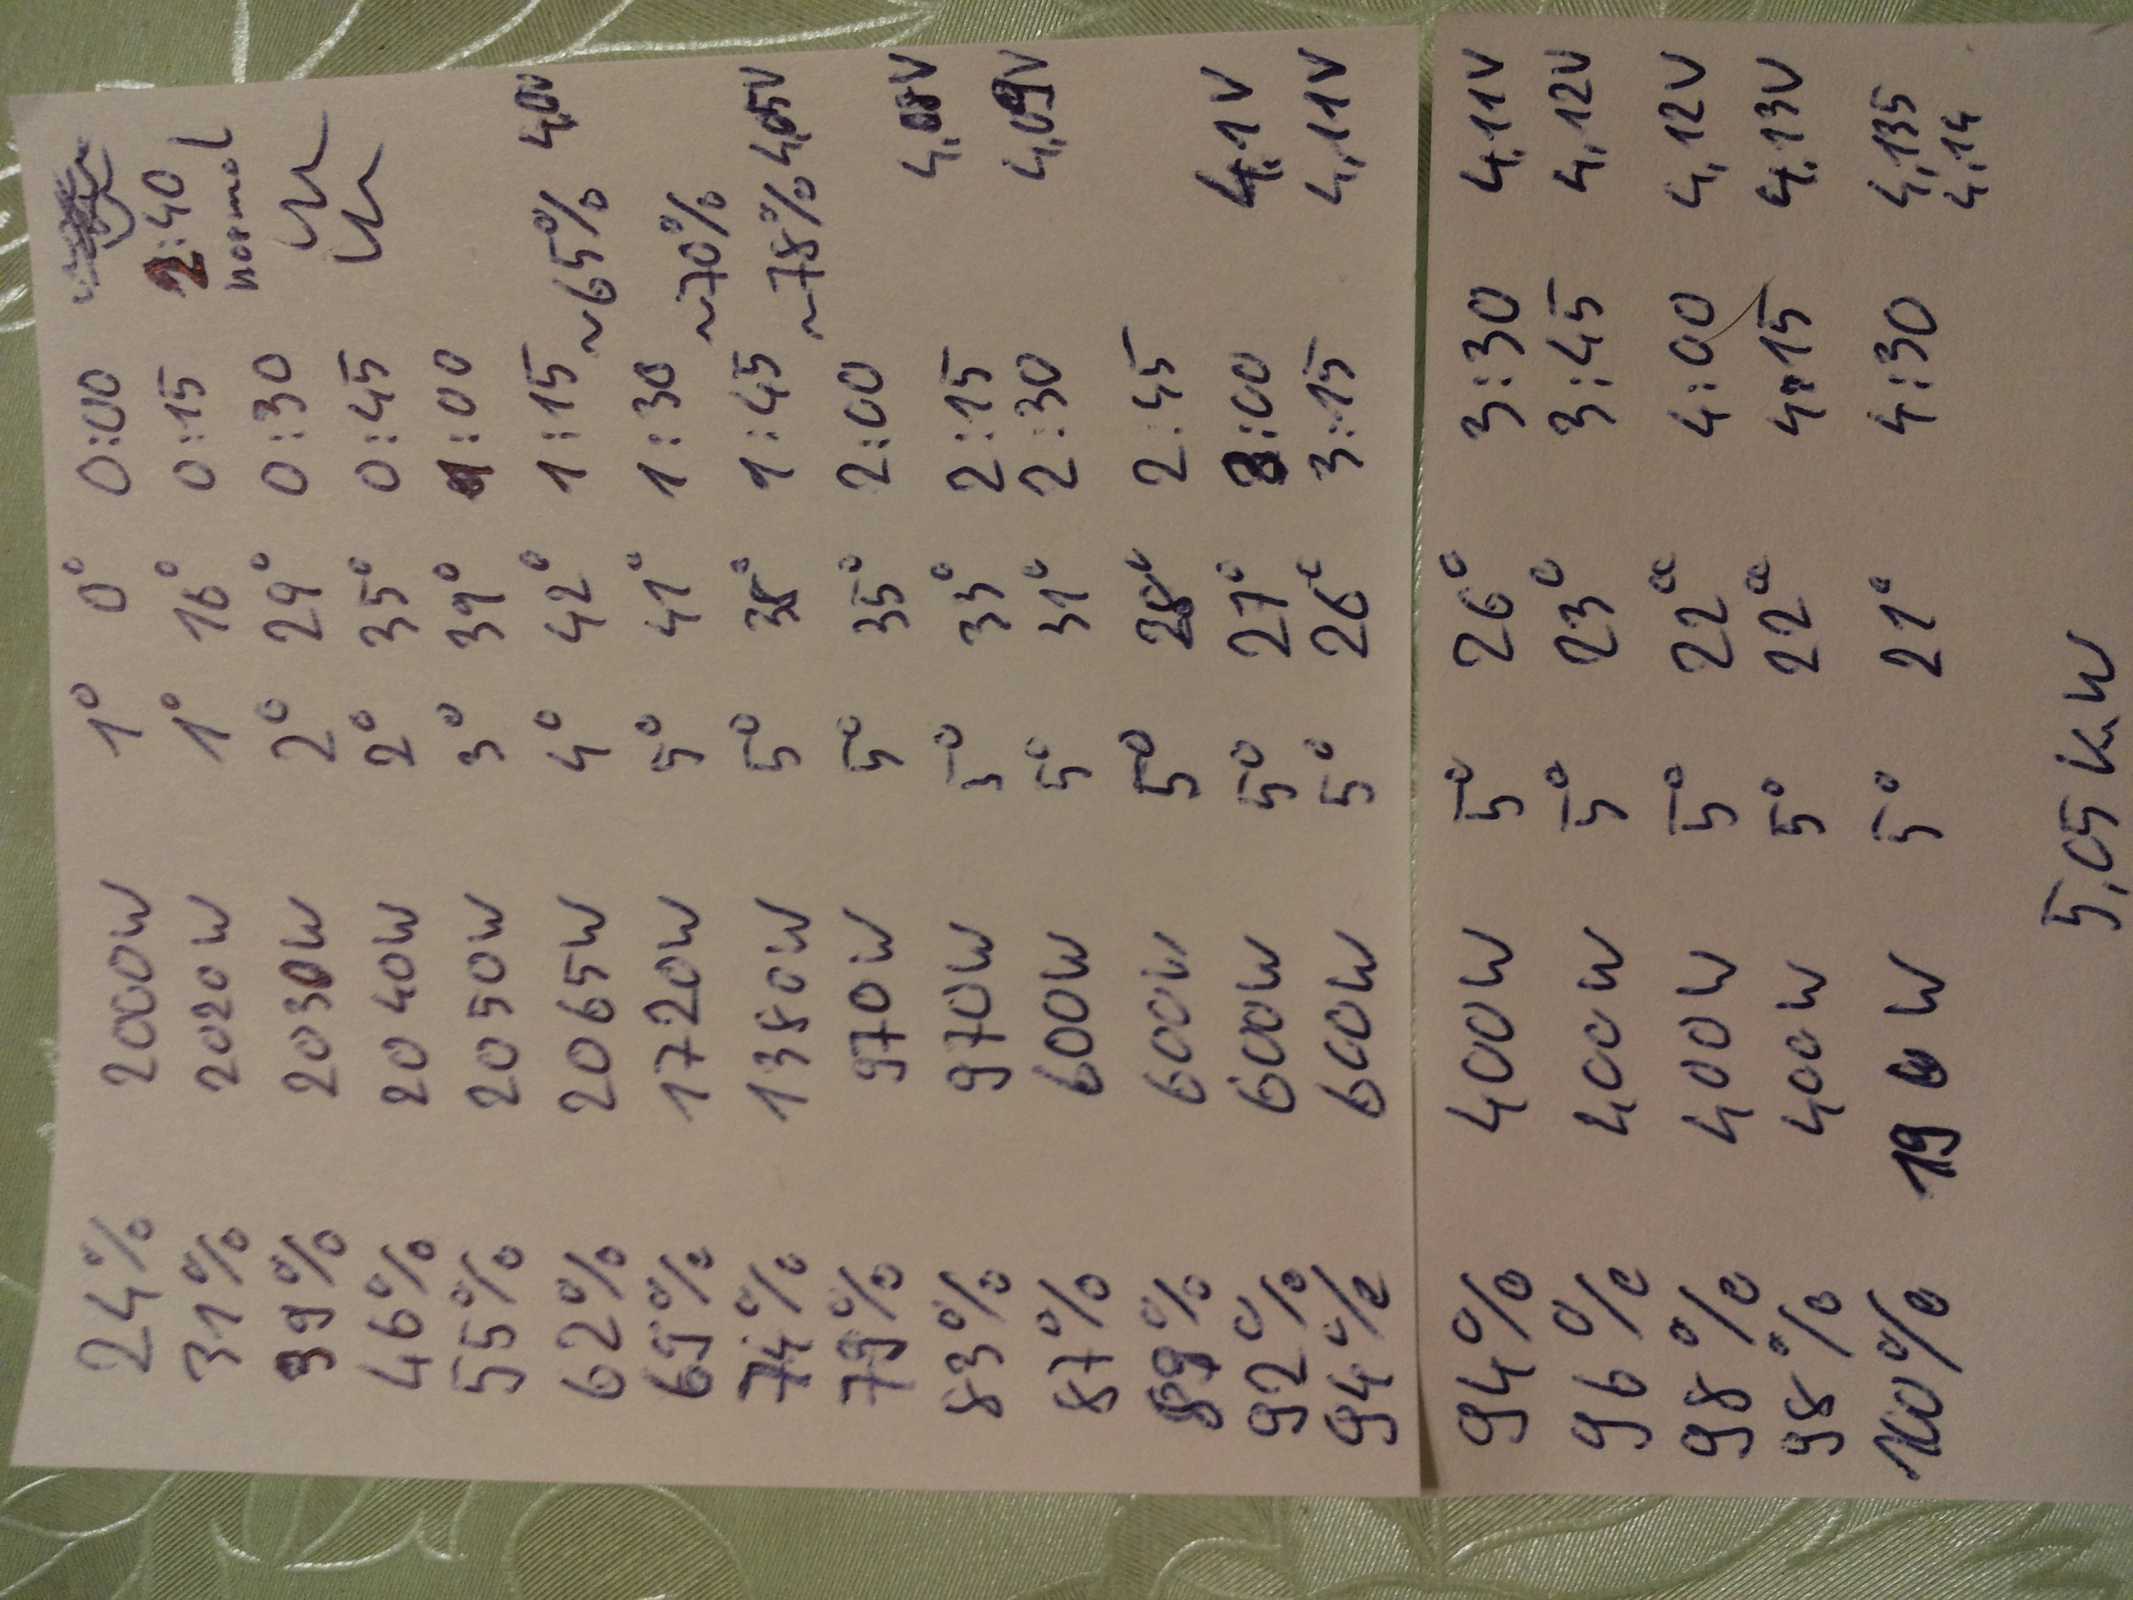 24% 2000W 1° 0° 0:00
31% 2020W 1° 16° 0:15 2:40
normal
39% 2030W 2° 29° 0:30
46% 2040W 2° 35° 0:45
55% 2050W 3° 39° 1:00
62% 2065W 4° 42° 1:15 ~65% 4,0V
69% 1720W 5° 41° 1:30 ~70%
74% 1380W 5° 38° 1:45 ~78% 4,05V
79% 970W 5° 35° 2:00
83% 970W 5° 33° 2:15 4,08V
87% 600W 5° 31° 2:30 4,09V
89% 600W 5° 28° 2:45
92% 600W 5° 27° 3:00 4,1V
94% 600W 5° 26° 3:15 4,11V
94% 400W 5° 26° 3:30 4,11V
96% 400W 5° 23° 3:45 4,12V
98% 400W 5° 22° 4:00 4,12V
98% 400W 5° 22° 4:15 4,13V
100% 190W 5° 21° 4:30 4,135
4,14
5,05 kW